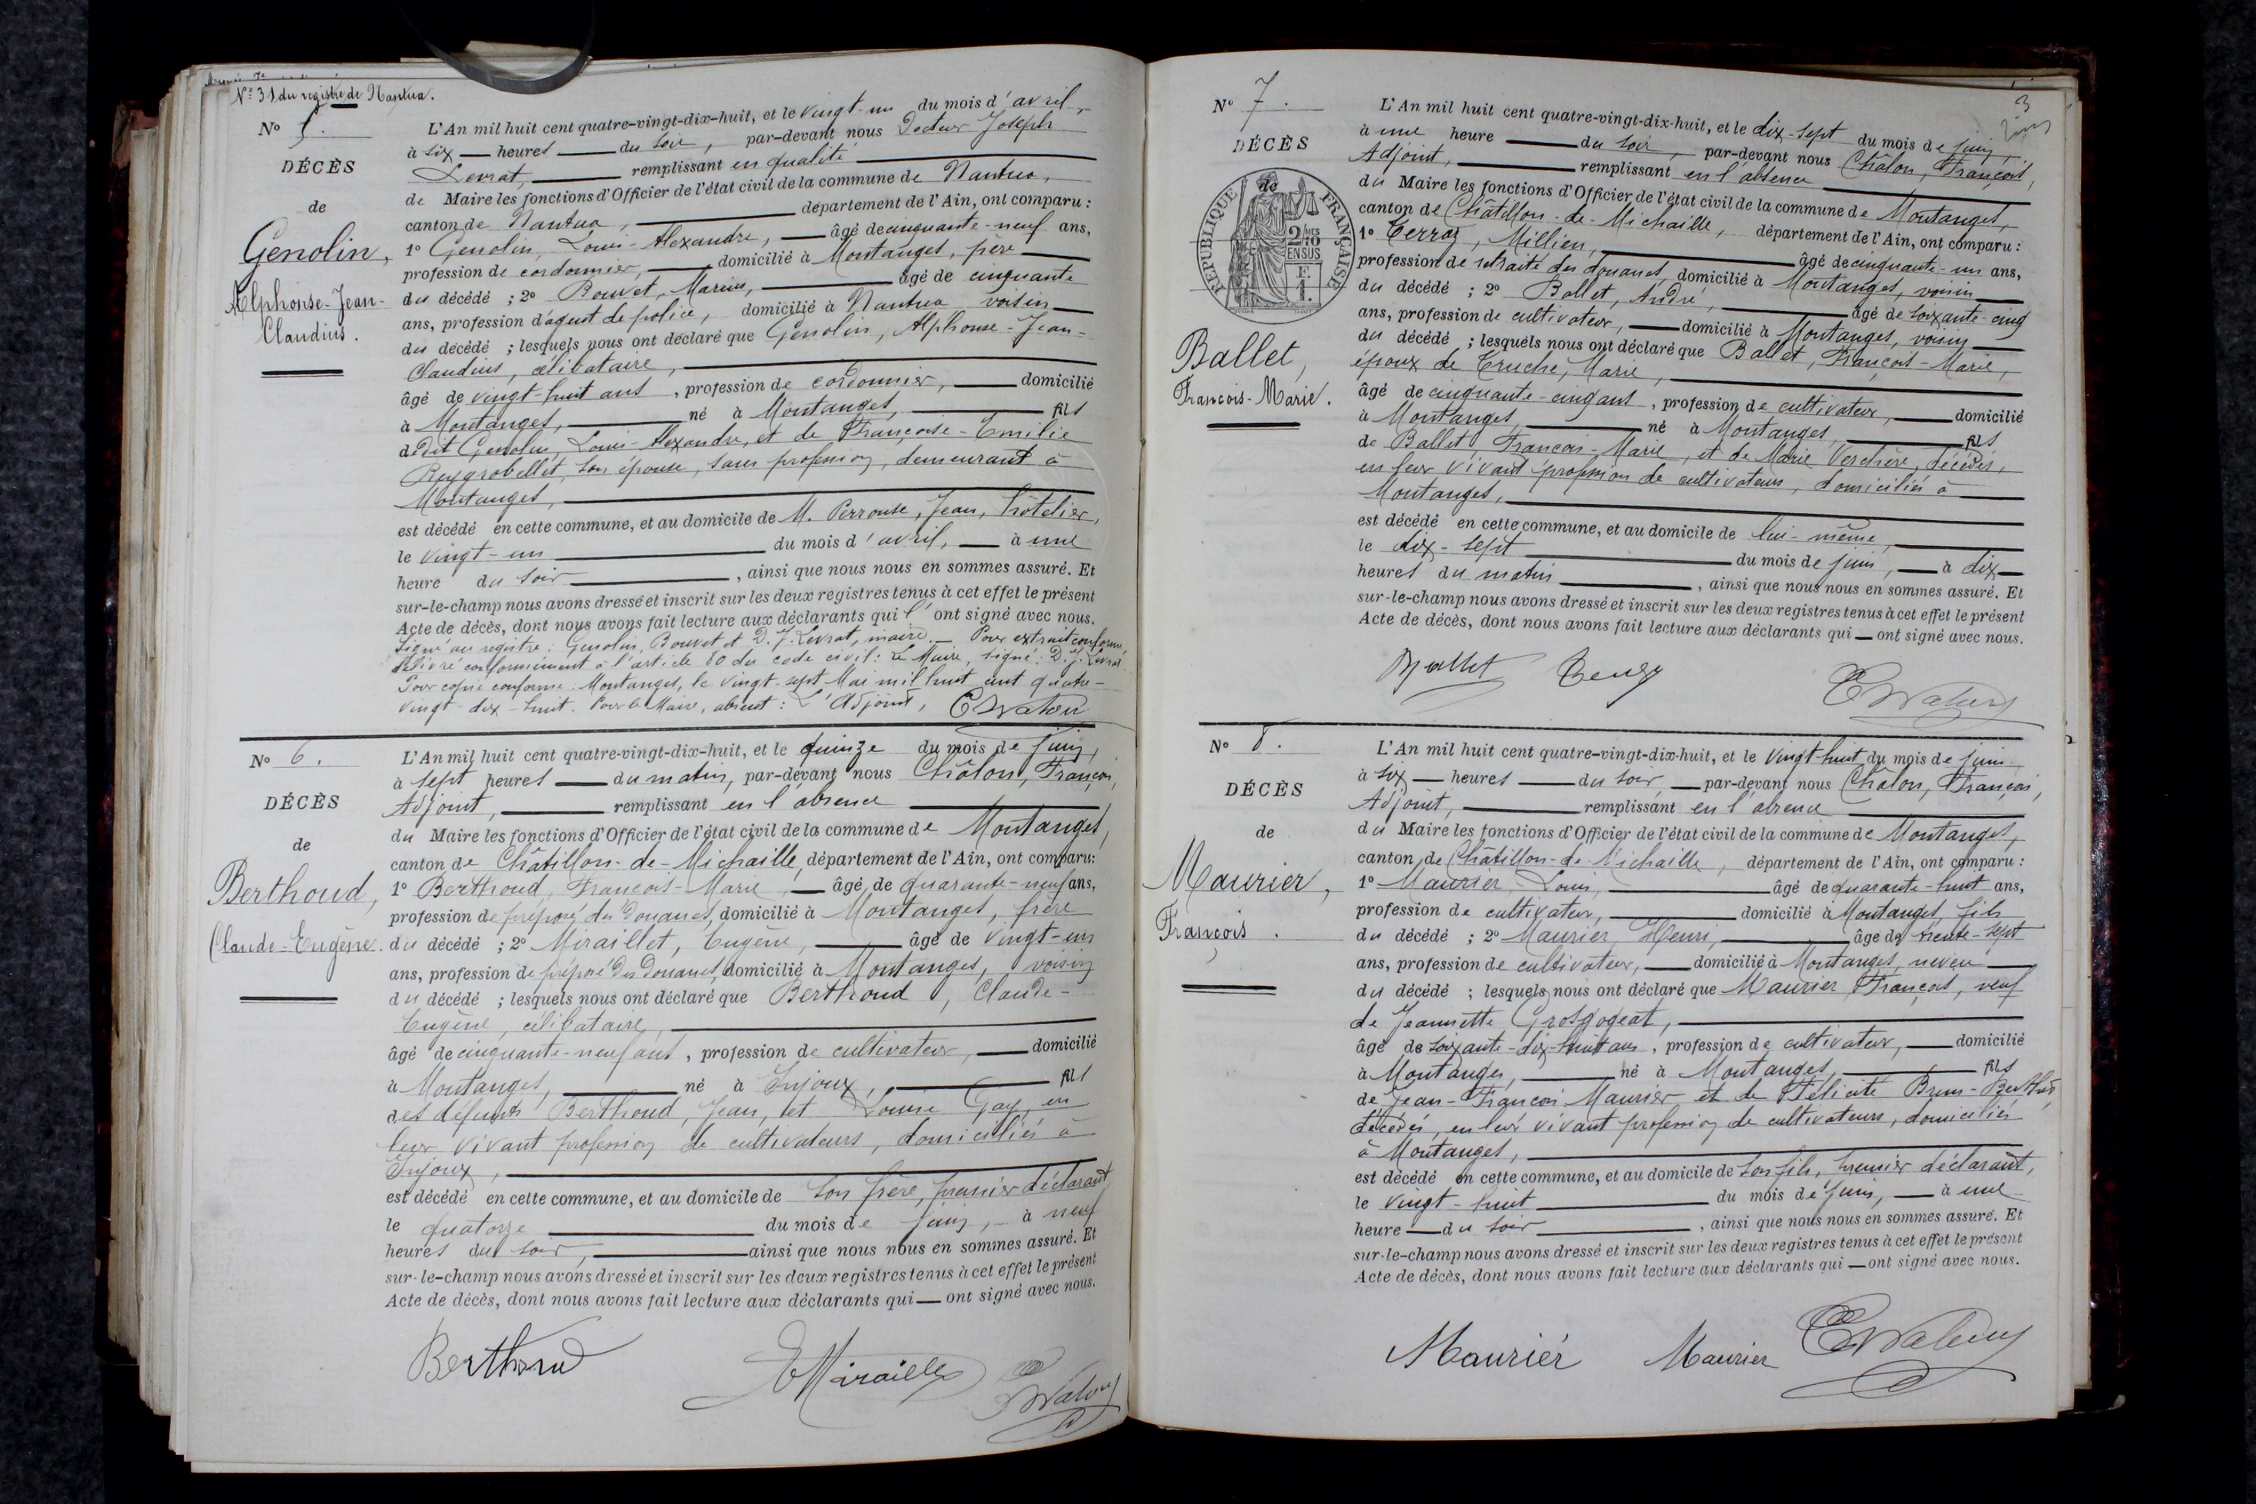 Nº 31 du registre de Nantua.
Nº 5.
DÉCÈS
de
Genolin,
Alphonse-Jean-
Claudius.
L'An mil huit cent quatre-vingt-dix-huit, et le vingt-un du mois d'avril,
à six heures du soir, par-devant nous Docteur Joseph
Levrat, remplissant en qualité
de Maire les fonctions d'Officier de l'état civil de la commune de Nantua,
canton de Nantua, département de l'Ain, ont comparu :
1º Genolin, Louis-Alexandre, âgé de cinquante-neuf ans,
profession de cordonnier, domicilié à Montanges, père
du décédé ; 2º Bouvet, Marius, âgé de cinquante
ans, profession d'agent de police, domicilié à Nantua voisin
du décédé ; lesquels nous ont déclaré que Genolin, Alphonse-Jean-
Claudius, célibataire,
âgé de vingt-huit ans, profession de cordonnier, domicilié
à Montanges, né à Montanges, fils
dudit Genolin, Louis-Alexandre, et de Françoise-Emilie
Reygrobellet, son épouse, sans profession, demeurant à
Montanges,
est décédé en cette commune, et au domicile de M. Perrouse, Jean, hôtelier,
le vingt-un du mois d'avril, à une
heure du soir, ainsi que nous nous en sommes assuré. Et
sur-le-champ nous avons dressé et inscrit sur les deux registres tenus à cet effet le présent
Acte de décès, dont nous avons fait lecture aux déclarants qui l'ont signé avec nous.
Signé au registre : Genolin, Bouvet et D. J. Levrat, maire. — Pour extrait conforme,
délivré conformément à l'article 80 du code civil : Le Maire, signé : D. J. Levrat
Pour copie conforme : Montanges, le vingt-sept Mai mil huit cent quatre-
vingt-dix-huit. Pour le Maire, absent : L'Adjoint,
Nº 6.
DÉCÈS
de
Berthoud,
Claude-Eugène.
L'An mil huit cent quatre-vingt-dix-huit, et le quinze du mois de juin,
à sept heures du matin, par-devant nous Châlon, François,
Adjoint, remplissant en l'absence
du Maire les fonctions d'Officier de l'état civil de la commune de Montanges,
canton de Châtillon-de-Michaille, département de l'Ain, ont comparu:
1º Berthoud, François-Marie, âgé de quarante-neuf ans,
profession de préposé des Douanes, domicilié à Montanges, frère
du décédé ; 2º Miraillet, Eugène, âgé de vingt-un
ans, profession de préposé des Douanes, domicilié à Montanges, voisin
du décédé ; lesquels nous ont déclaré que Berthoud, Claude-
Eugène, célibataire,
âgé de cinquante-neuf ans, profession de cultivateur, domicilié
à Montanges, né à Injoux, fils
des défunts Berthoud, Jean, et Louise Gay, en
leur vivant profession de cultivateurs, domiciliés à
Injoux,
est décédé en cette commune, et au domicile de son frère, premier déclarant,
le quatorze du mois de juin, à neuf
heures du soir, ainsi que nous nous en sommes assuré. Et
sur-le-champ nous avons dressé et inscrit sur les deux registres tenus à cet effet le présent
Acte de décès, dont nous avons fait lecture aux déclarants qui — ont signé avec nous.
Berthoud
3
Nº 7.
DÉCÈS
de
RÉPUBLIQUE FRANÇAISE
2/10
EN SUS
Ballet,
François-Marie.
L'An mil huit cent quatre-vingt-dix-huit, et le dix-sept du mois de juin,
à une heure du soir, par-devant nous Châlon, François,
Adjoint, remplissant en l'absence
du Maire les fonctions d'Officier de l'état civil de la commune de Montanges,
canton de Châtillon-de-Michaille, département de l'Ain, ont comparu :
1º Terroz, Millien, âgé de cinquante-un ans,
profession de retraité des douanes, domicilié à Montanges, voisin
du décédé ; 2º Ballet, André, âgé de soixante-cinq
ans, profession de cultivateur, domicilié à Montanges, voisin
du décédé ; lesquels nous ont déclaré que Ballet, François-Marie,
époux de Truche, Marie,
âgé de cinquante-cinq ans, profession de cultivateur, domicilié
à Montanges, né à Montanges, fils
de Ballet François-Marie, et de Marie Verchère, décédés,
en leur vivant profession de cultivateurs, domiciliés à
Montanges,
est décédé en cette commune, et au domicile de lui-même,
le dix-sept du mois de juin, à dix
heures du matin, ainsi que nous nous en sommes assuré. Et
sur-le-champ nous avons dressé et inscrit sur les deux registres tenus à cet effet le présent
Acte de décès, dont nous avons fait lecture aux déclarants qui — ont signé avec nous.
Ballet
Nº 8.
DÉCÈS
de
Maurier,
François.
L'An mil huit cent quatre-vingt-dix-huit, et le vingt-huit du mois de juin
à six heures du soir, par-devant nous Châlon, François,
Adjoint, remplissant en l'absence
du Maire les fonctions d'Officier de l'état civil de la commune de Montanges,
canton de Châtillon-de-Michaille, département de l'Ain, ont comparu :
1º Maurier Louis, âgé de quarante-huit ans,
profession de cultivateur, domicilié à Montanges, fils
du décédé ; 2º Maurier Henri, âgé de trente-sept
ans, profession de cultivateur, domicilié à Montanges, neveu
du décédé ; lesquels nous ont déclaré que Maurier François, veuf
de Jeannette Grosgogeat,
âgé de soixante-dix-huit ans, profession de cultivateur, domicilié
à Montanges, né à Montanges, fils
de Jean-François Maurier et de Félicité Brun-Berthod,
décédés, en leur vivant profession de cultivateurs, domiciliés
à Montanges,
est décédé en cette commune, et au domicile de son fils, premier déclarant,
le vingt-huit du mois de juin, à une
heure du soir, ainsi que nous nous en sommes assuré. Et
sur-le-champ nous avons dressé et inscrit sur les deux registres tenus à cet effet le présent
Acte de décès, dont nous avons fait lecture aux déclarants qui — ont signé avec nous.
Maurier Maurier